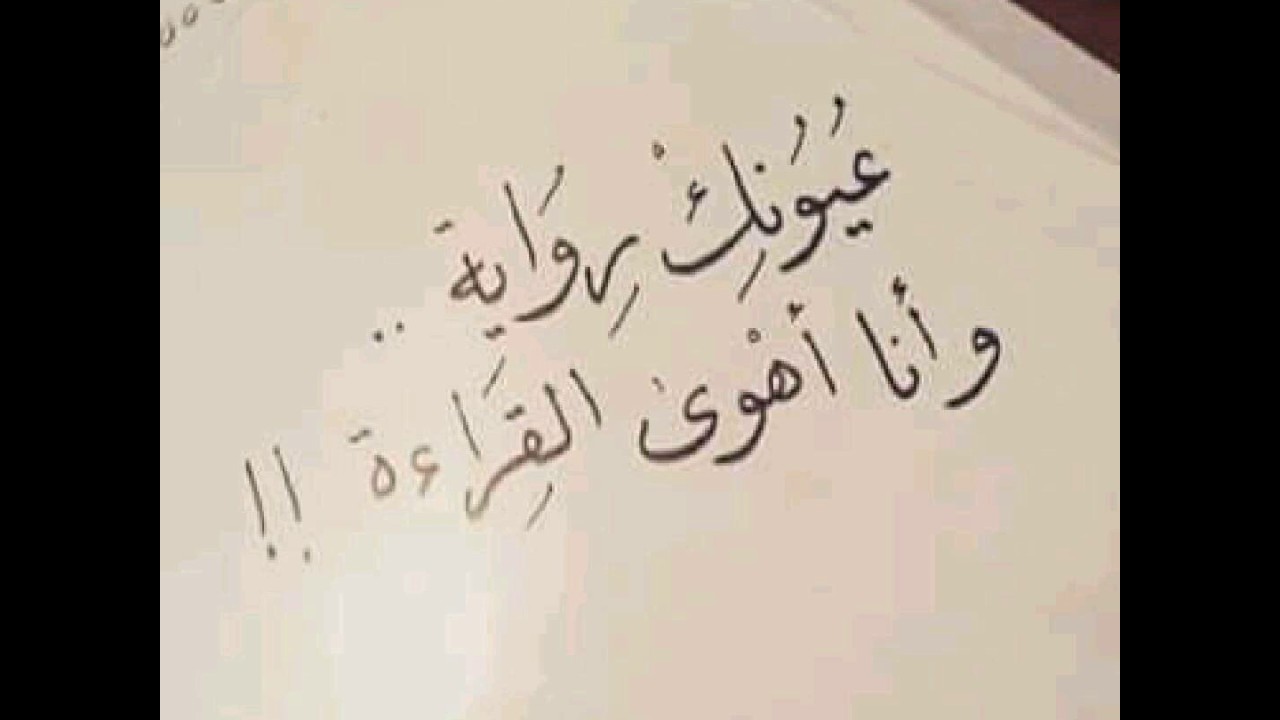 عُيُونِكْ رِوَاية ..
وأنا أهْوىٰ القِرَاءة !!